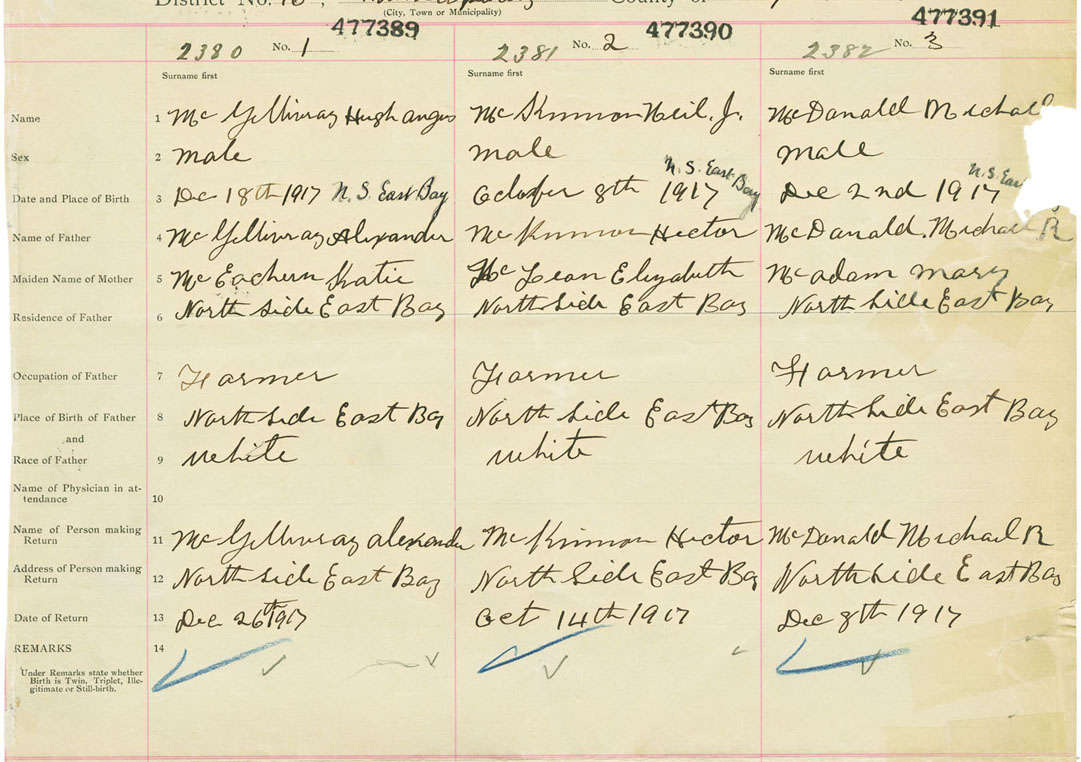 District No. County of
(City, Town or Municipality)
477389 477390 477391
2380 No. 1 2381 No. 2 2382 No. 3
Surname first Surname first Surname first
Name 1 McGillivray Hugh angus McKinnon Neil. J. McDonald Michael
Sex 2 male male male
N. S. East Bay N. S. East
Date and Place of Birth 3 Dec 18th 1917 N. S. East Bay October 8th 1917 Dec 2nd 1917
Name of Father 4 McGillivray Alexander McKinnon Hector McDonald. Michael R
Maiden Name of Mother 5 McEachern Katie McLean Elizabeth Mcadam Mary
Residence of Father 6 North Side East Bay North Side East Bay North Side East Bay
Occupation of Father 7 Farmer Farmer Farmer
Place of Birth of Father 8 North Side East Bay North Side East Bay North Side East Bay
and
Race of Father 9 white white white
Name of Physician in at-
tendance 10
Name of Person making
Return 11 McGillivray alexander McKinnon Hector McDonald Michael R
Address of Person making
Return 12 North Side East Bay North Side East Bay North Side East Bay
Date of Return 13 Dec 26th 1917 Oct 14th 1917 Dec 8th 1917
REMARKS 14
Under Remarks state whether
Birth is Twin. Triplet, Ille-
gitimate or Still-birth.